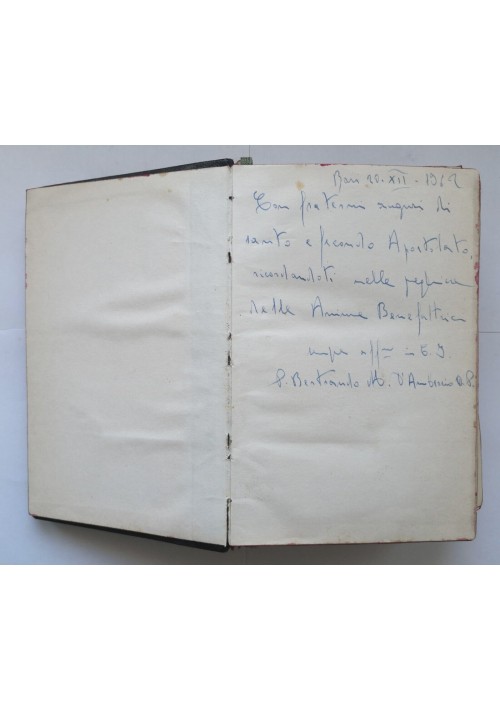 Bari 20.XII.1962
Con fraterni auguri di
santo e fecondo Apostolato,
ricordandoti nelle preghiere
delle Anime Benefattrici
aff.mo in C. J.
P. Bertrando M. D'Ambrosio O.P.